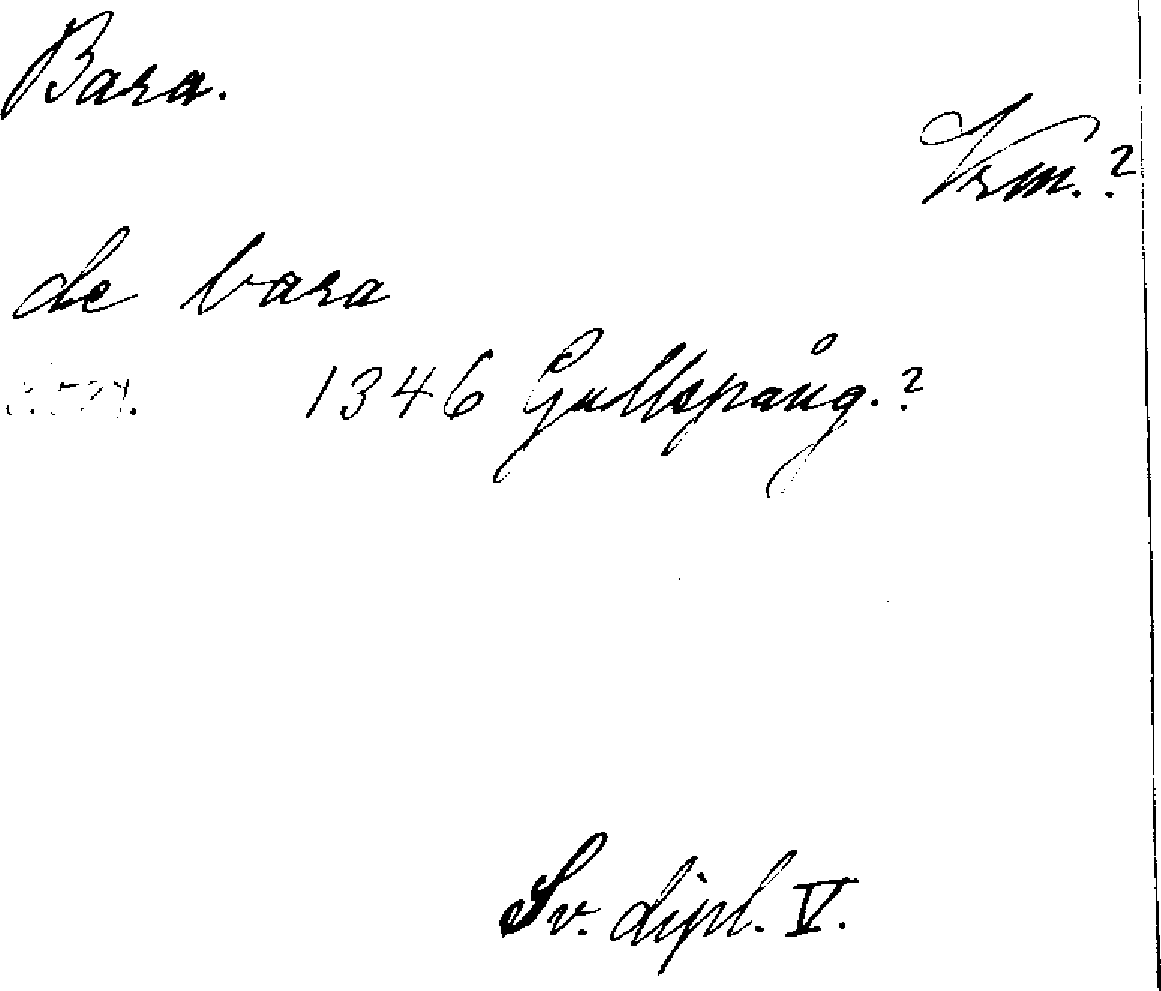 Bara.
Vrm.?
de bara
1346 Gullspång.?
Sv. dipl. V.